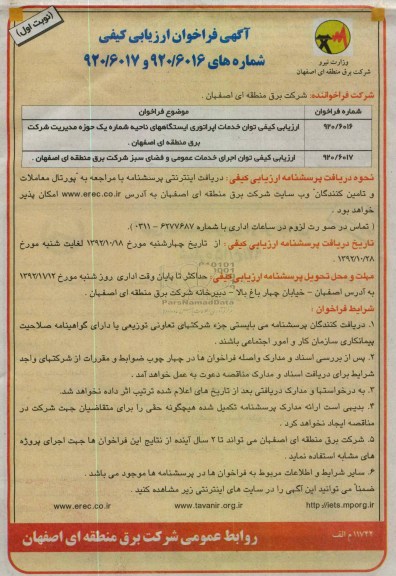 (نوبت اول)
آگهی فراخوان ارزیابی کیفی
شماره های ۹۲۰/۶۰۱۶ و ۹۲۰/۶۰۱۷
وزارت نیرو
شرکت برق منطقه ای اصفهان
شرکت فراخواننده: شرکت برق منطقه ای اصفهان .
شماره فراخوان موضوع فراخوان
۹۲۰/۶۰۱۶ ارزیابی کیفی توان خدمات اپراتوری ایستگاههای ناحیه شماره یک حوزه مدیریت شرکت
برق منطقه ای اصفهان .
۹۲۰/۶۰۱۷ ارزیابی کیفی توان اجرای خدمات عمومی و فضای سبز شرکت برق منطقه ای اصفهان .
نحوه دریافت پرسشنامه ارزیابی کیفی : دریافت اینترنتی پرسشنامه با مراجعه به "پورتال معاملات
و تامین کنندگان" وب سایت شرکت برق منطقه ای اصفهان به آدرس www.erec.co.ir امکان پذیر
خواهد بود .
( تماس در صورت لزوم در ساعات اداری با شماره ۶۲۷۷۶۸۷ – ۰۳۱۱)
تاریخ دریافت پرسشنامه ارزیابی کیفی : از تاریخ چهارشنبه مورخ ۱۳۹۲/۱۰/۱۸ لغایت شنبه مورخ
۱۳۹۲/۱۰/۲۸
مهلت و محل تحویل پرسشنامه ارزیابی کیفی: حداکثر تا پایان وقت اداری روز شنبه مورخ ۱۳۹۲/۱۱/۱۲
به آدرس اصفهان – خیابان چهار باغ بالا – دبیرخانه شرکت برق منطقه ای اصفهان .
ParsNamadData
شرایط فراخوان :
۱. دریافت کنندگان پرسشنامه می بایستی جزء شرکتهای تعاونی توزیعی یا دارای گواهینامه صلاحیت
پیمانکاری سازمان کار و امور اجتماعی باشند .
۲. پس از بررسی اسناد و مدارک واصله فراخوان ها در چهار چوب ضوابط و مقررات از شرکتهای واجد
شرایط برای دریافت اسناد و مدارک مناقصه دعوت به عمل خواهد آمد .
۳. به درخواستها و مدارک دریافتی بعد از تاریخ های اعلام شده ترتیب اثر داده نخواهد شد.
۴. بدیهی است ارائه مدارک پرسشنامه تکمیل شده هیچگونه حقی را برای متقاضیان جهت شرکت در
مناقصه ایجاد نخواهد کرد .
۵. شرکت برق منطقه ای اصفهان می تواند تا ۲ سال آینده از نتایج این فراخوان ها جهت اجرای پروژه
های مشابه استفاده نماید .
۶. سایر شرایط و اطلاعات مربوط به فراخوان ها در پرسشنامه ها موجود می باشد .
ضمناً می توانید این آگهی را در سایت های اینترنتی زیر مشاهده کنید .
http://iets.mporg.ir www.tavanir.org.ir www.erec.co.ir
۱۱۷۴۴/م الف
روابط عمومی شرکت برق منطقه ای اصفهان